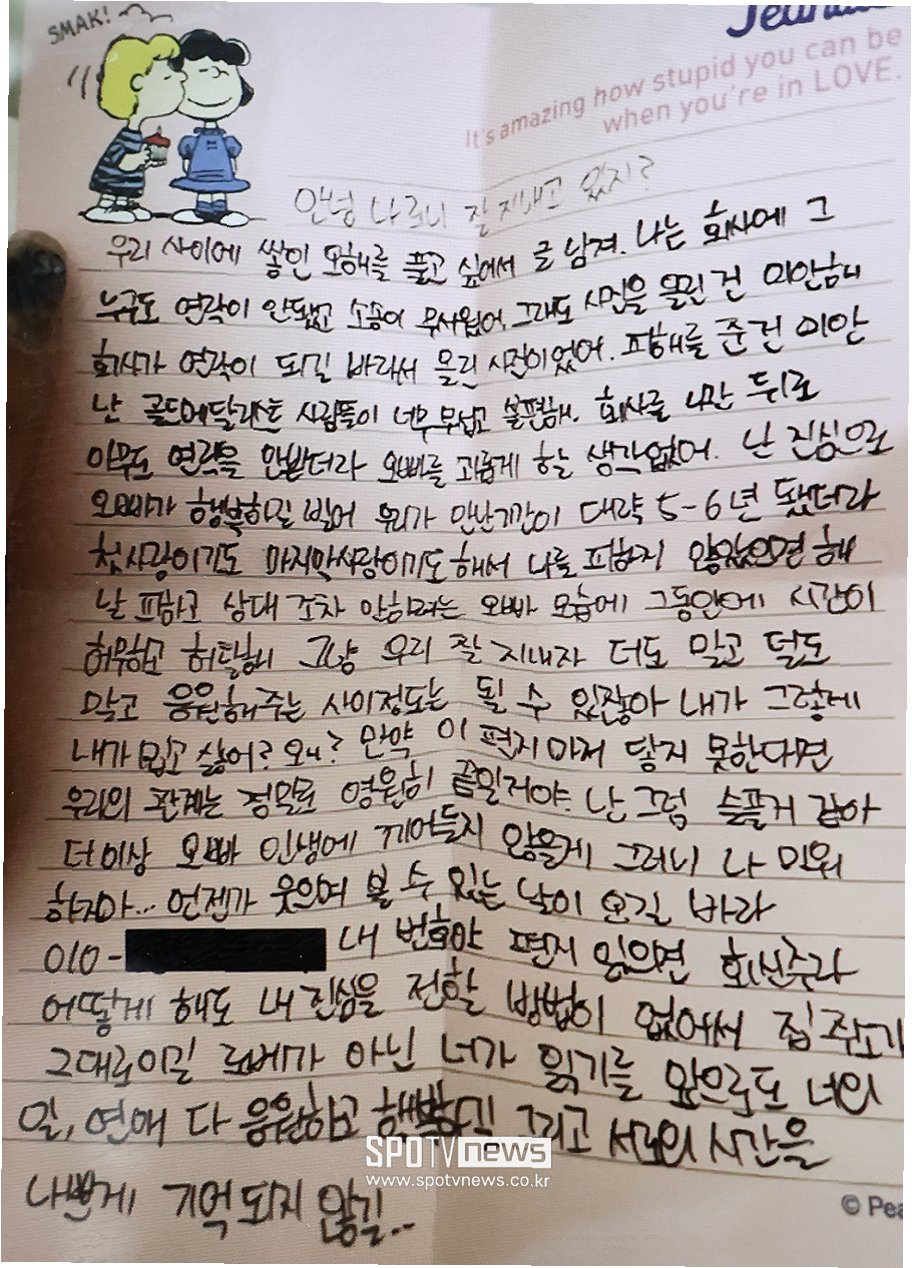 SMAK!
It's amazing how stupid you can be
when you're in LOVE.
안녕 나르니 잘 지내고 있지?
우리 사이에 쌓인 오해를 풀고 싶어서 글 남겨. 나는 회사에 그
누구도 연락이 안됐고 소송이 무서웠어. 그래도 사진을 올린 건 미안해
회사가 연락이 되길 바라서 올린 사진이었어. 피해를 준건 미안
난 골드메달리스트 사람들이 너무 무섭고 불편해. 회사를 나간 뒤로
아무도 연락을 안받더라 오빠를 괴롭게 할 생각없어. 난 진심으로
오빠가 행복하길 빌어 우리가 만난기간이 대략 5-6년 됐더라
첫사랑이기도 마지막사랑이기도 해서 나를 피하지 않았으면 해
날 피하고 상대 조차 안하려는 오빠 모습에 그동안에 시간이
허무하고 허탈해 그냥 우리 잘 지내자 더도 말고 덜도
말고 응원해주는 사이정도는 될 수 있잖아 내가 그렇게
내가 밉고 싫어? 왜? 만약 이 편지마저 닿지 못한다면
우리의 관계는 정말로 영원히 끝일거야. 난 그럼 슬플거 같아
더이상 오빠 인생에 끼어들지 않을게 그러니 나 미워
하지마... 언젠가 웃으며 볼 수 있는 날이 오길 바라
010- 내 번호야 편지 읽으면 회신주라
어떻게 해도 내 진심을 전할 방법이 없어서 집 주소가
그대로이길 로베가 아닌 너가 읽기를 앞으로도 너의
일, 연애 다 응원하고 행복하길 그리고 서로의 시간을
나쁘게 기억되지 않길..
SPOTV news
www.spotvnews.co.kr
© Pea